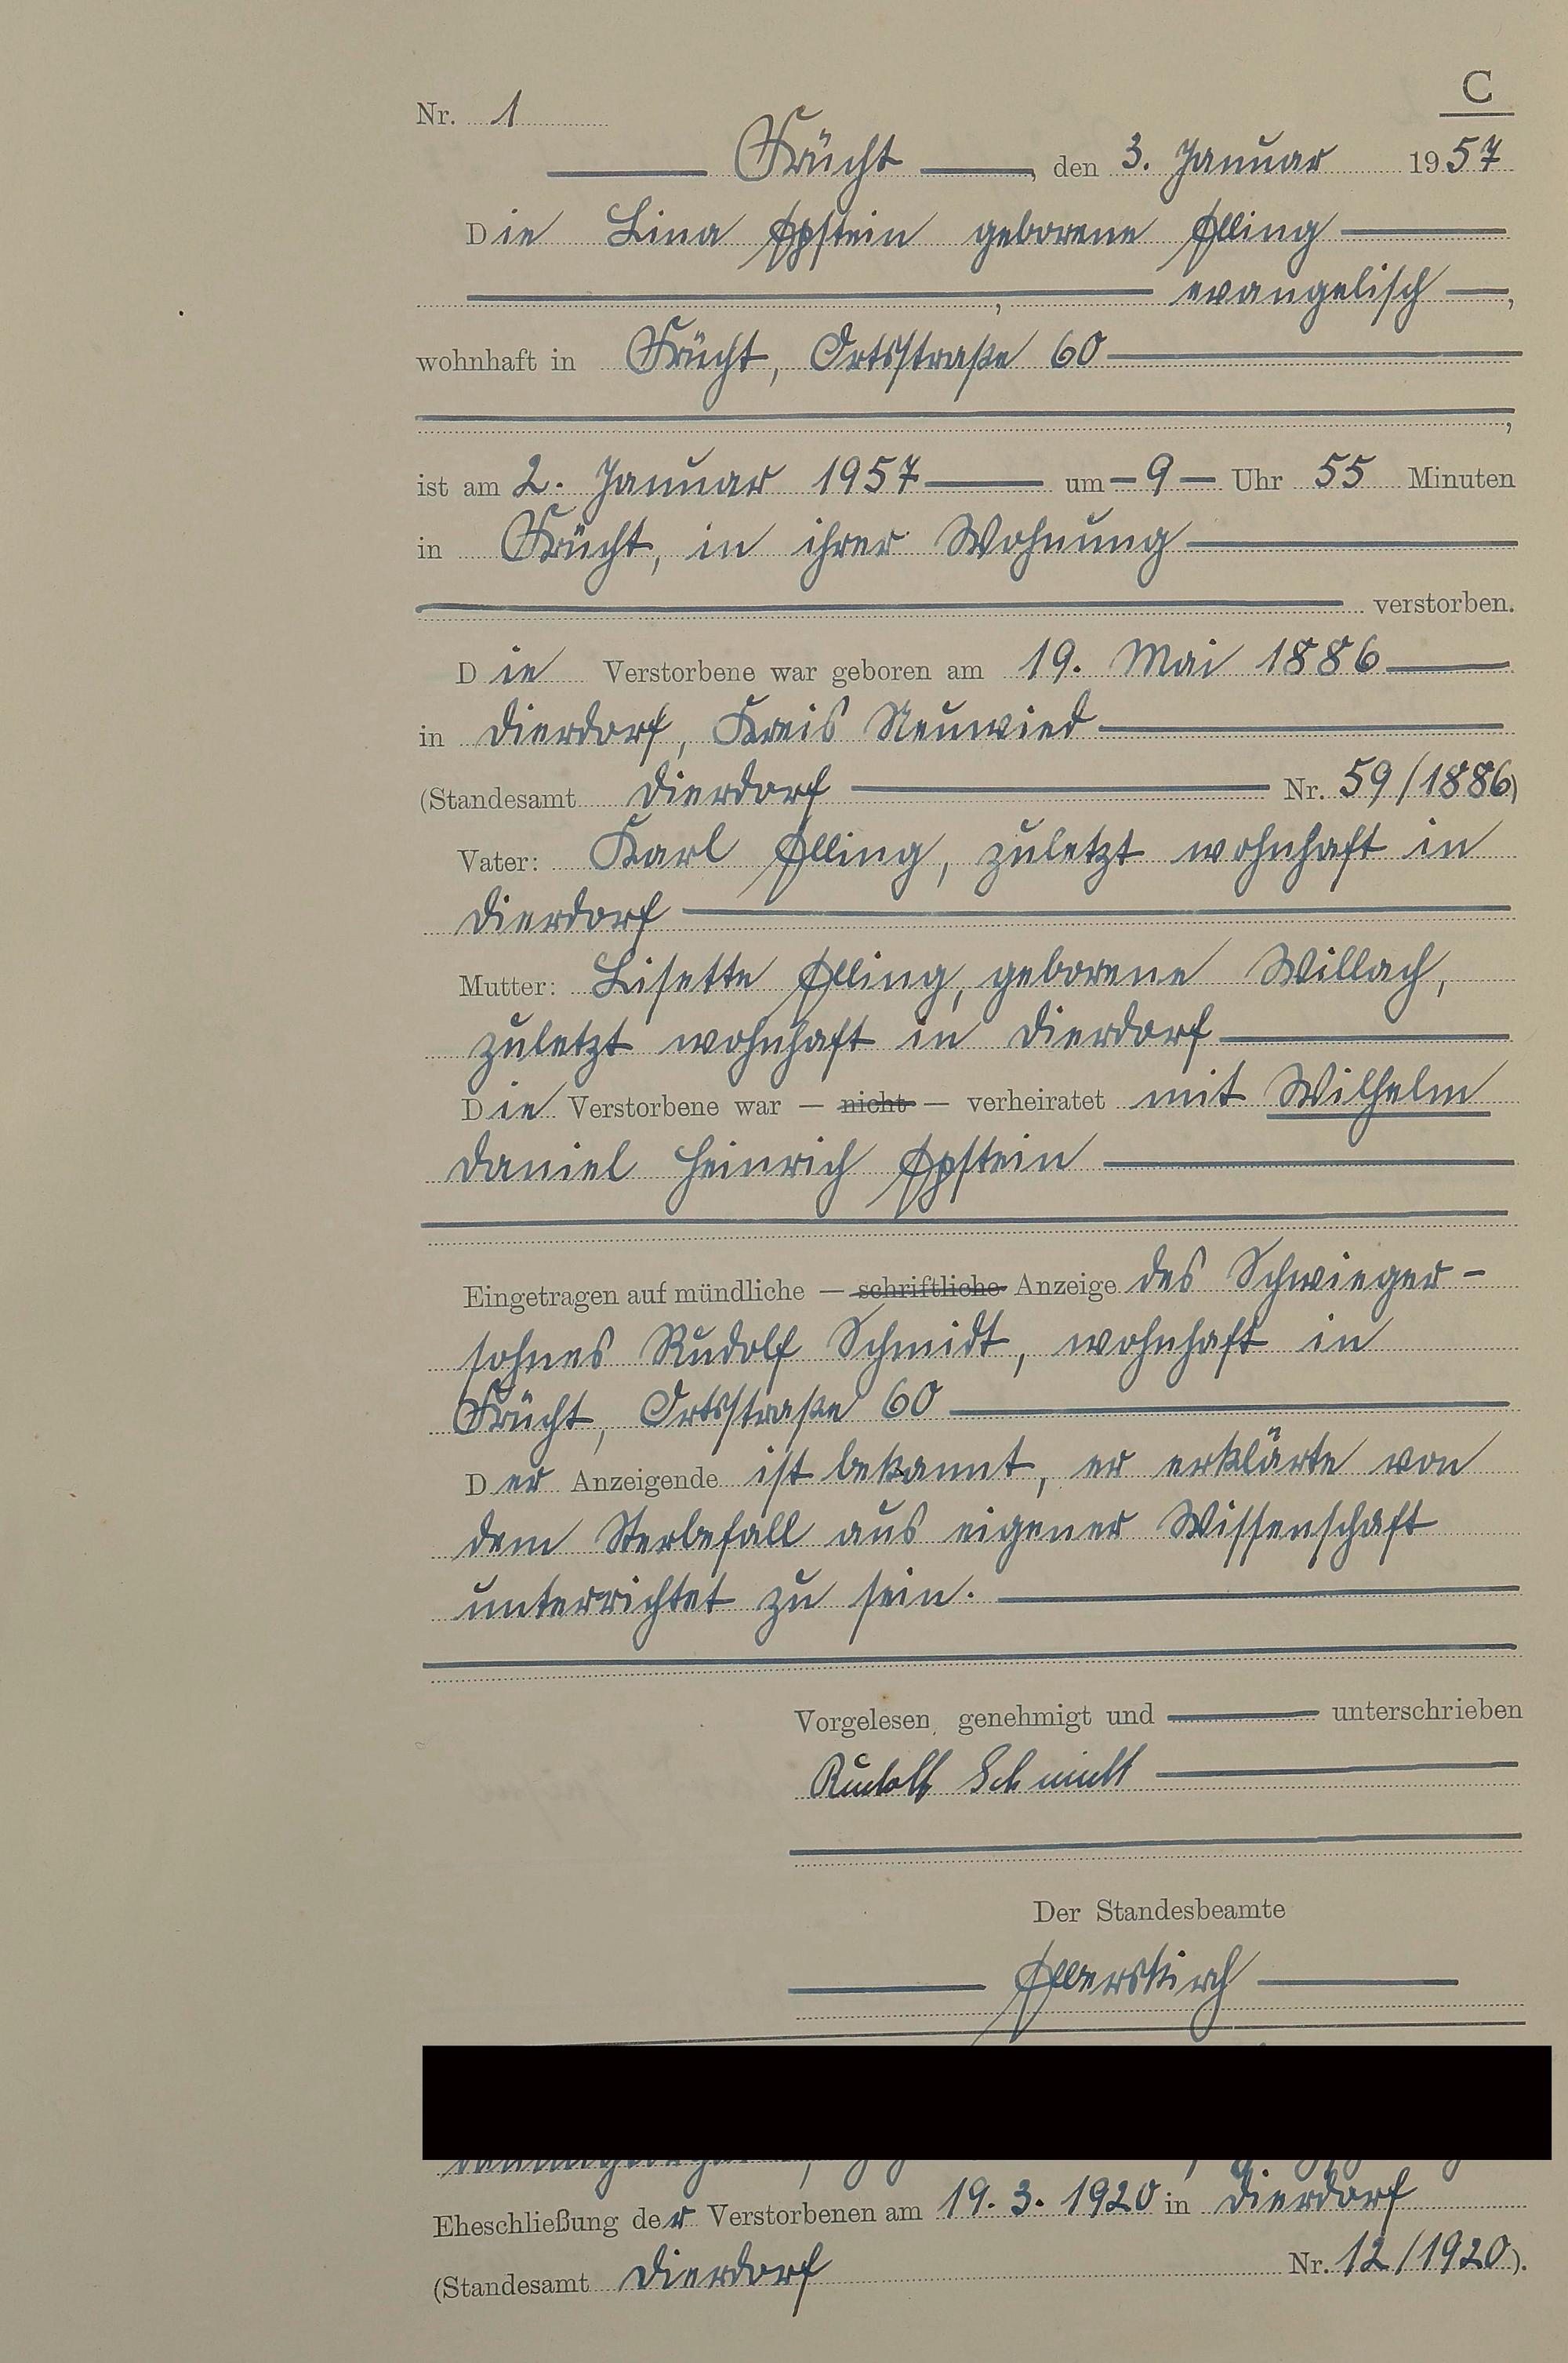 C
Nr. 1
Frücht, den 3. Januar 1957
Die Lina Epstein geborene Elling
, evangelisch,
wohnhaft in Frücht, Ortsstraße 60
,
ist am 2. Januar 1957 um 9 Uhr 55 Minuten
in Frücht, in ihrer Wohnung
verstorben.
Die Verstorbene war geboren am 19. Mai 1886
in Dierdorf, Kreis Neuwied
(Standesamt Dierdorf Nr. 59/1886)
Vater: Karl Elling, zuletzt wohnhaft in
Dierdorf
Mutter: Lisette Elling, geborene Willach,
zuletzt wohnhaft in Dierdorf
Die Verstorbene war — nicht — verheiratet mit Wilhelm
Daniel Heinrich Epstein
Eingetragen auf mündliche — schriftliche Anzeige des Schwieger-
sohnes Rudolf Schmidt, wohnhaft in
Frücht, Ortsstraße 60
Der Anzeigende ist bekannt, er erklärte von
dem Sterbefall aus eigener Wissenschaft
unterrichtet zu sein.
Vorgelesen, genehmigt und unterschrieben
Rudolf Schmidt
Der Standesbeamte
Elberskirch
Eheschließung der Verstorbenen am 19. 3. 1920 in Dierdorf
(Standesamt Dierdorf Nr. 12/1920).